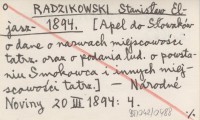 RADZIKOWSKI Stanisław El-
jasz- 1894. [Apel do Słowaków
o dane o nazwach miejscowości
tatrz. oraz o podania lud. o powsta-
niu Smokowca i innych miej-
scowości tatrz.] — Národné
Noviny 20 III 1894: 4.